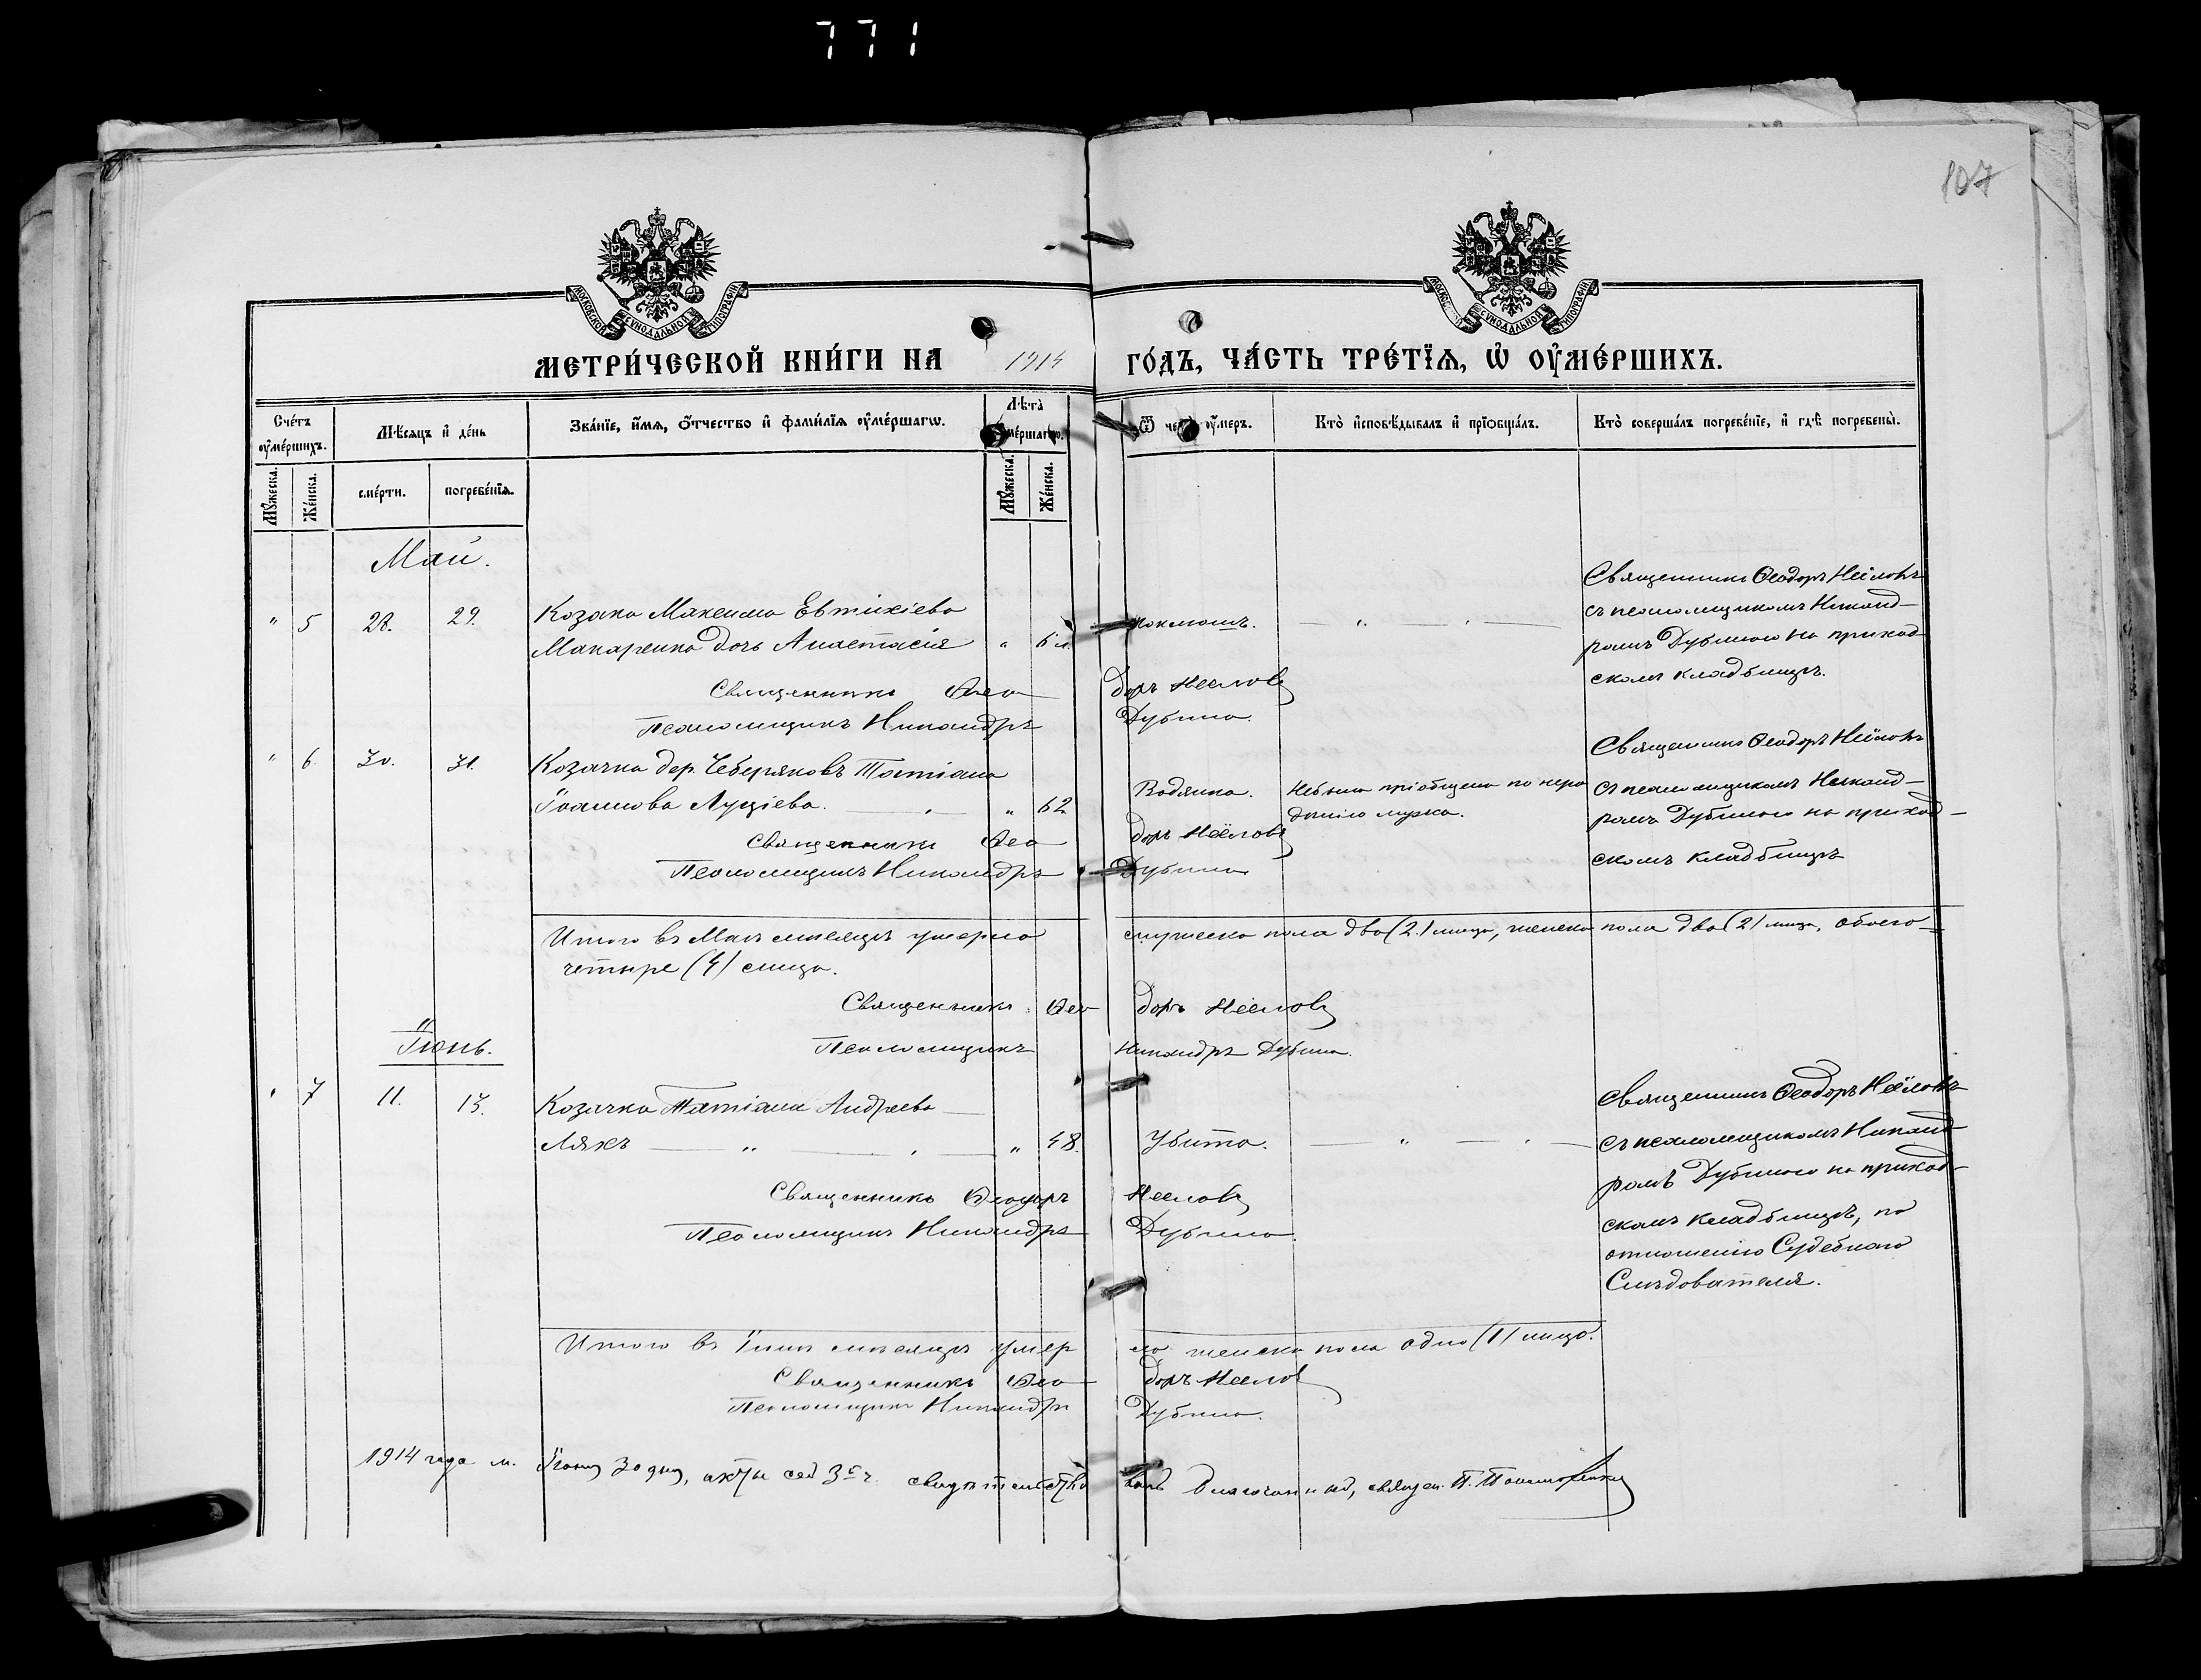 771
107
МОСКОВСКОЙ СѴНОДАЛЬНОЙ ТИПОГРАФІИ
МОСКОВСКОЙ СѴНОДАЛЬНОЙ ТИПОГРАФІИ
МЕТРИ́ЧЕСКОЙ КНИ́ГИ НА 1914 ГО́ДЪ, ЧА́СТЬ ТРЕ́ТЇѦ, Ѡ҆ ОУ҆МЕ́РШИХЪ.
Сче́тъ оу҆ме́ршихъ.
Мѣ́сѧцъ и҆ де́нь
Зва́нїе, и҆́мѧ, ѻ҆́тчество и҆ фами́лїѧ оу҆ме́ршагѡ.
Лѣта̀ оу҆ме́ршагѡ.
Ѿ чегѡ̀ оу҆́меръ.
Кто̀ и҆сповѣ́дывалъ и҆ прїѡбща́лъ.
Кто̀ соверша́лъ погребе́нїе, и҆ гдѣ̀ погребены̀.
Мꙋ́жеска.
Же́нска.
сме́рти.
погребе́нїѧ.
Мꙋ́жеска.
Же́нска.
Май.
" 5 28. 29. Козака Максима Евтихіева
Макаренка дочь Анастасія " 6 л.
Коклюшъ.
Священникъ Ѳеодоръ Нѣіловъ
съ псаломщикомъ Никанд-
ромъ Дубиною на приход-
скомъ кладбищѣ.
Священникъ Ѳеодоръ Неелов
Псаломщикъ Никандръ Дубина.
" 6. 30. 31. Козачка дер. Чеберяковъ Татіана
Іоаннова Луціева. " 62
Водянка.
Не была пріобщена по нера-
дѣнію мужа.
Священникъ Ѳеодоръ Нѣіловъ
съ псаломщикомъ Никанд-
ромъ Дубиною на приход-
скомъ кладбищѣ
Священникъ Ѳеодоръ Неелов
Псаломщикъ Никандръ Дубина
Итого въ Маѣ мѣсяцѣ умерло мужеска пола два (2) лица, женска пола два (2) лица, обоего
четыре (4) лица.
Священникъ Ѳеодоръ Неелов
Псаломщикъ Никандръ Дубина.
Іюнь.
" 7 11. 13. Козачка Татіана Андреева
Ляхъ " 48.
Убита.
Священникъ Ѳеодоръ Нѣіловъ
съ псаломщикомъ Никанд-
ромъ Дубиною на приход-
скомъ кладбищѣ, по
отношенію Судебнаго
Слѣдователя.
Священникъ Ѳеодоръ Неелов
Псаломщикъ Никандръ Дубина
Итого въ Іюнѣ мѣсяцѣ умерло женска пола одно (1) лицо.
Священникъ Ѳеодоръ Неелов
Псаломщикъ Никандръ Дубина.
1914 года м. Іюня 30 дня, акты сей 3ей ч. свидѣтельствовалъ Благочинный, священ. П.